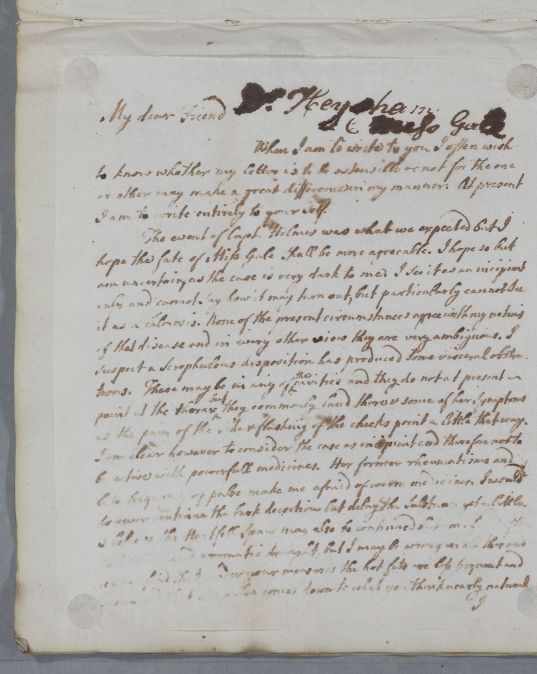 My dear Friend Dr. Heysham
Miss Gale
When I am to write to you I often wish
to know whether my letter is to be ostensible or not for the one
or other may make a great difference in my manner. At present
I am to write entirely to your self.
The event of Capt. Holmes was what we expected but I
hope the fate of Miss Gale shall be more agreeable. I hope so but
am uncertain, as the case is very dark to me. I see it as an incipient
only and cannot say how it may turn out, but particularly cannot see
it as a chlorosis. None of the present circumstances agree with my notions
of that disease and in every other view they are very ambiguous. I
suspect a Scrophulous disposition has produced some visceral obstruc
tions. These may be in any of the cavities and they do not at present
point at the thorax but they commonly land there & some of her Symptoms
as the pain of the side & flushing of the cheeks point a little that way.
I am clear however to consider the case as incipient and therefore not to
be active with powerfull medicines. Her former rheumatisms and
frequency of pulse make me afraid of warm medicines. I would
however continue the bark decoction but delay the
the Hartfell Spaw may also be continued
and aromatic draught but I may be wrong
your measures the hot fits are less frequent and
comes down to what you think nearly natural